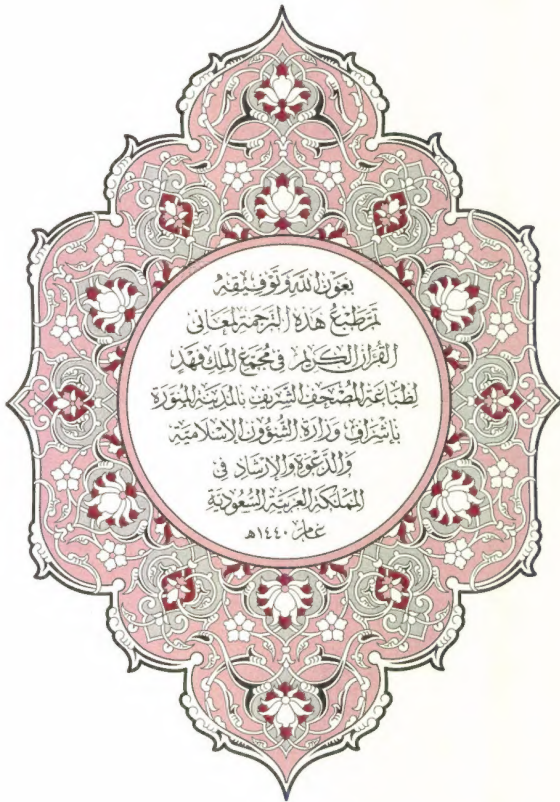 بعَون الله وَتَوفيقه
تم طبعُ هَذه الترجمة لمعَاني
القُرآن الكريم في مُجمّع الملك فهد
لطبَاعَة المُصْحَف الشّريف بالمدينة المنوّرة
بإشراف وزارة الشّؤون الإسلاميّة
وَالدّعوة والإرشاد في
المملكة العَربيّة السّعُوديّة
عَام ١٤٤٠هـ